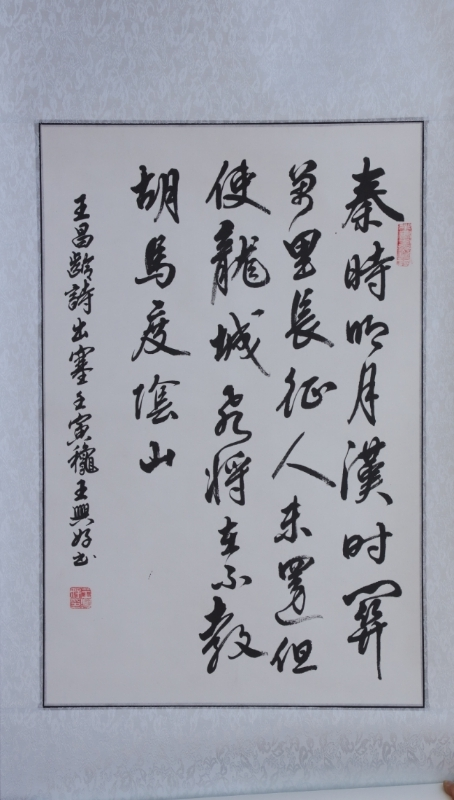 秦時明月漢时關
萬里長征人未還但
使龍城飛將在不教
胡馬度陰山
王昌齡詩出塞壬寅龝王興好书